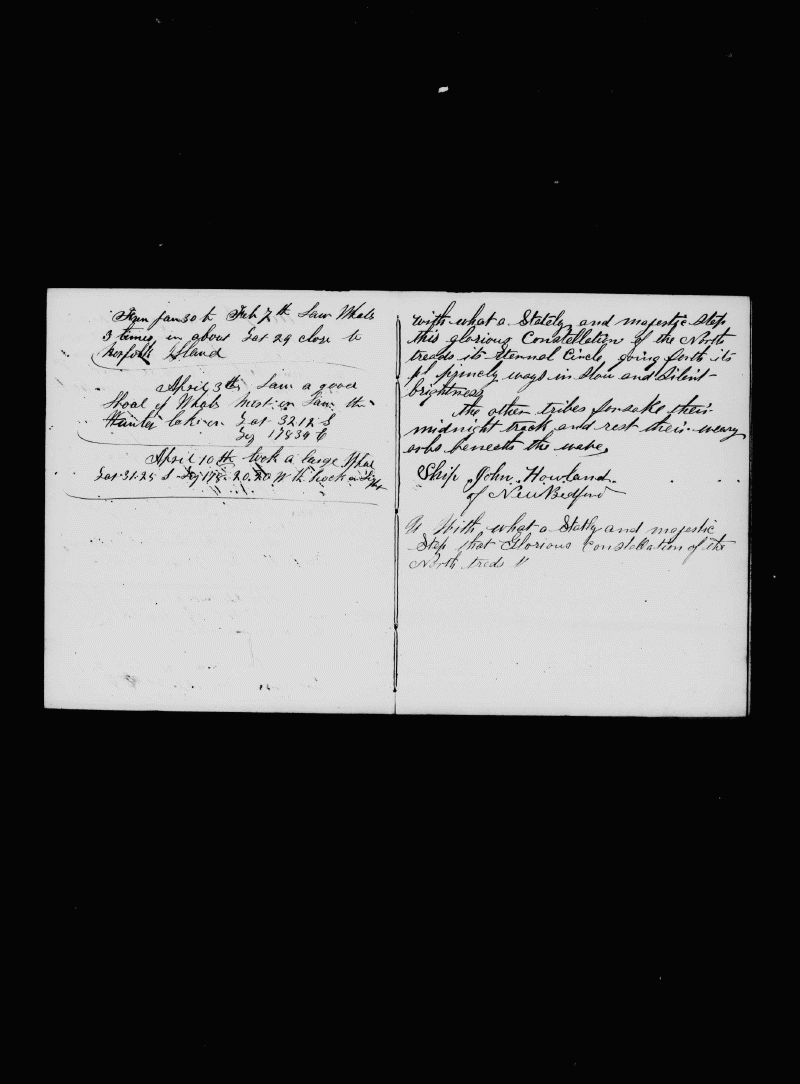 From Jan 30 to Feb 7th Saw Whale
3 times in about Lat 29 close to
Norfolk Island
April 3th Saw a good
Shoal of Whale West in Saw the
taken Lat 32 12 S
Log 178 34 E
April 10th took a large Whale
Lat 31.25 S Log 178.20.20 W the rock in Sight
With what a Stately and majestic step
this glorious Constellation of the North
treads its Eternal Circle, going forth its
princely ways in Slow and Silent
brightness
The other tribes forsake their
midnight track and rest their weary
orbs beneath the wave,
Ship John Howland
of New Bedford
With what a Statly and majestic
Step that Glorious Constellation of the
North treds "